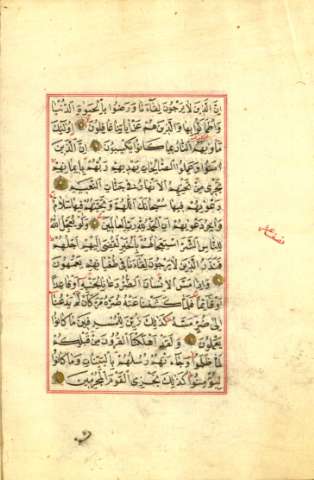 ان الذين لا يرجون لقاءنا ورضوا بالحيوة الدنيا
واطمأنوا بها والذين هم عن اياتنا غافلون اولئك
مأويهم النار بما كانوا يكسبون ان الذين
امنوا وعملوا الصالحات يهديهم ربهم بايمانهم
تجرى من تحتهم الانهار فى جنات النعيم
دعويهم فيها سبحانك اللهم وتحيتهم فيها سلام
واخر دعويهم ان الحمد لله رب العالمين ولو يعجل الله
للناس الشر استعجالهم بالخير لقضى اليهم اجلهم
فنذر الذين لا يرجون لقاءنا فى طغيانهم يعمهون
واذا مس الانسان الضر دعانا لجنبه او قاعدا
او قائما فلما كشفنا عنه ضره مر كأن لم يدعنا
الى ضر مسه كذلك زين للمسرفين ما كانوا
يعملون ولقد اهلكنا القرون من قبلكم
لما ظلموا وجاءتهم رسلهم بالبينات وما كانوا
ليؤمنوا كذلك نجزى القوم المجرمين